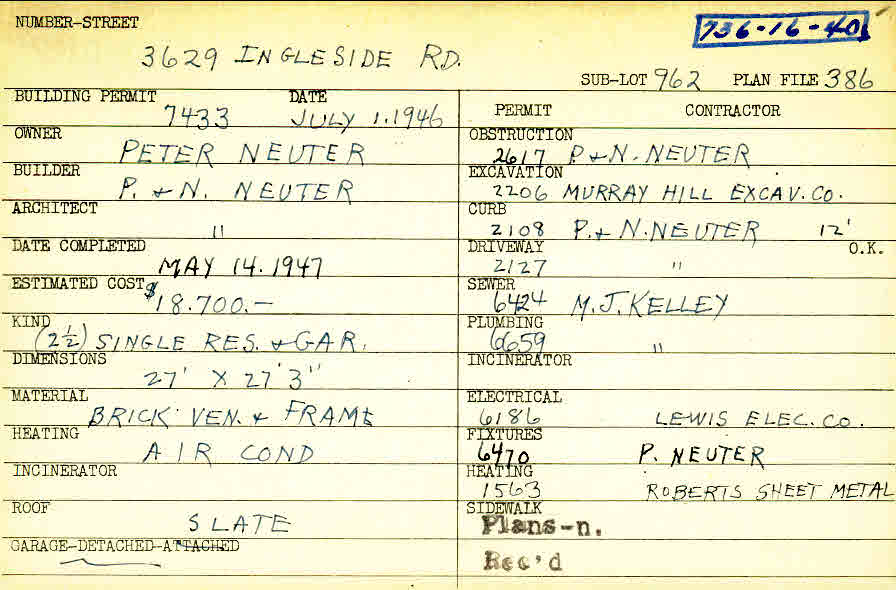 NUMBER-STREET
736-16-40
3629 INGLESIDE RD.
SUB-LOT 962 PLAN FILE 386
BUILDING PERMIT DATE
7433 JULY 1.1946
OWNER
PETER NEUTER
BUILDER
P. & N. NEUTER
ARCHITECT
"
DATE COMPLETED
MAY 14.1947
ESTIMATED COST
$18.700.-
KIND
(2½) SINGLE RES. & GAR.
DIMENSIONS
27' X 27'3"
MATERIAL
BRICK VEN. & FRAME
HEATING
AIR COND
INCINERATOR
ROOF
SLATE
GARAGE-DETACHED-ATTACHED
PERMIT CONTRACTOR
OBSTRUCTION
2617 P. & N. NEUTER
EXCAVATION
2206 MURRAY HILL EXCAV. CO.
CURB
2108 P. & N. NEUTER 12'
DRIVEWAY O.K.
2127 "
SEWER
6424 M.J. KELLEY
PLUMBING
6659 "
INCINERATOR
ELECTRICAL
6186 LEWIS ELEC. CO.
FIXTURES
6470 P. NEUTER
HEATING
1563 ROBERTS SHEET METAL
SIDEWALK
Plans-n.
Rec'd